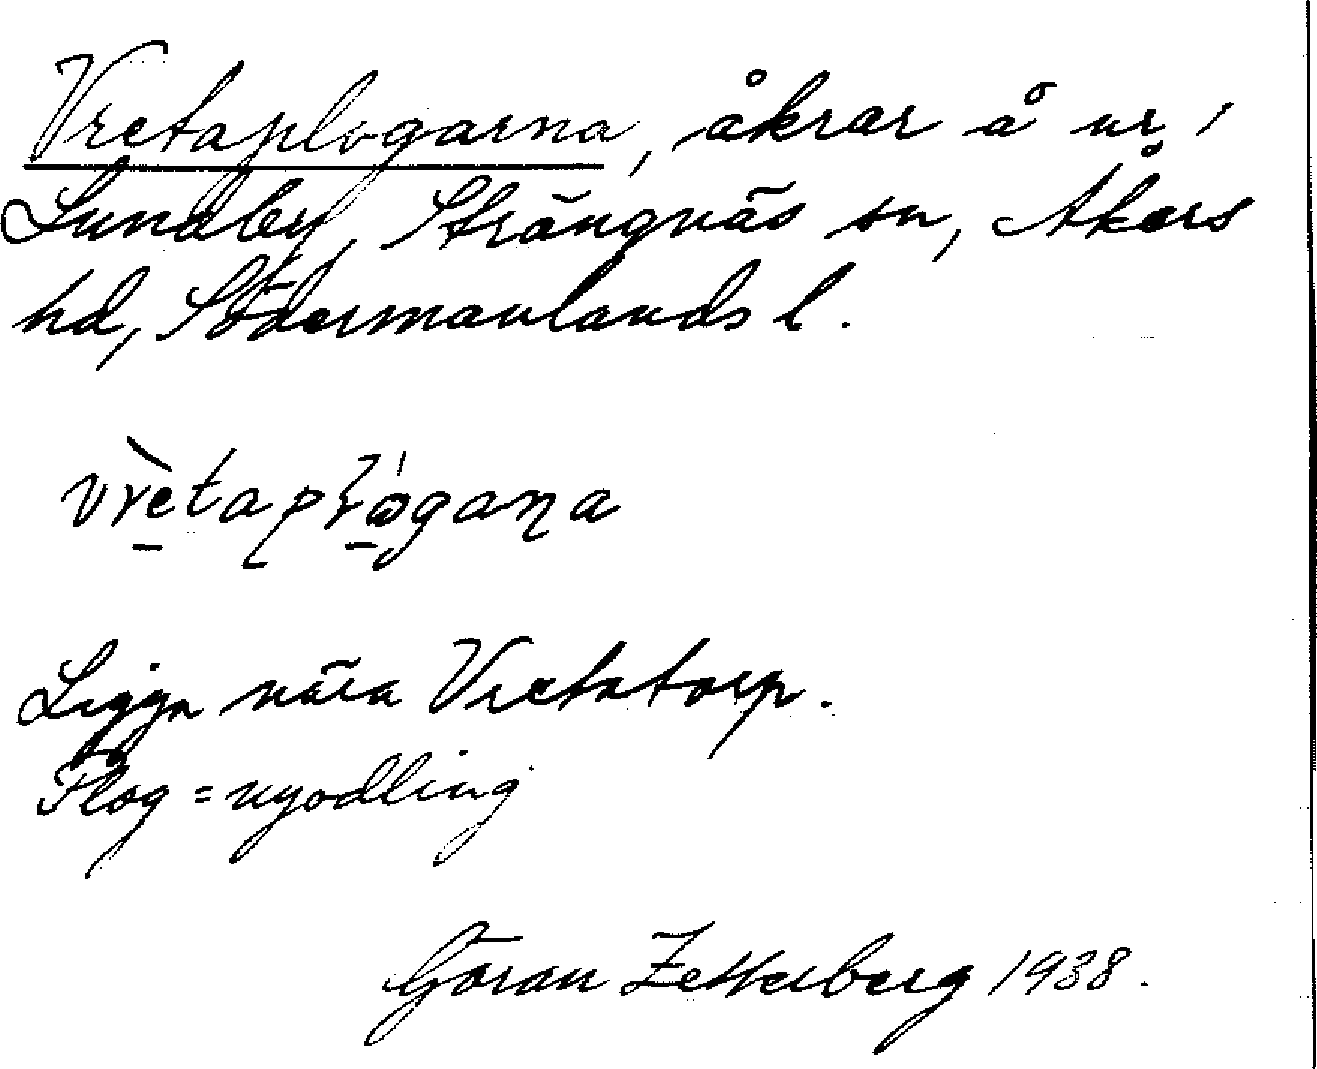 Vretaplogarna, åkrar å nr 1
Lundby, Strängnäs sn, Åkers
hd, Södermanlands l.
vrètaplógaṇa
Ligga nära Vretatorp.
Plog = nyodling
Göran Zetterberg 1938.